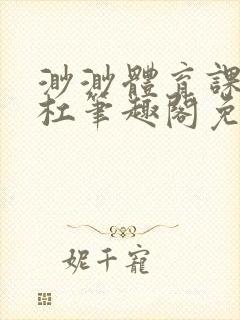 渺渺體育課
杜筆趣閣免
妮千寵